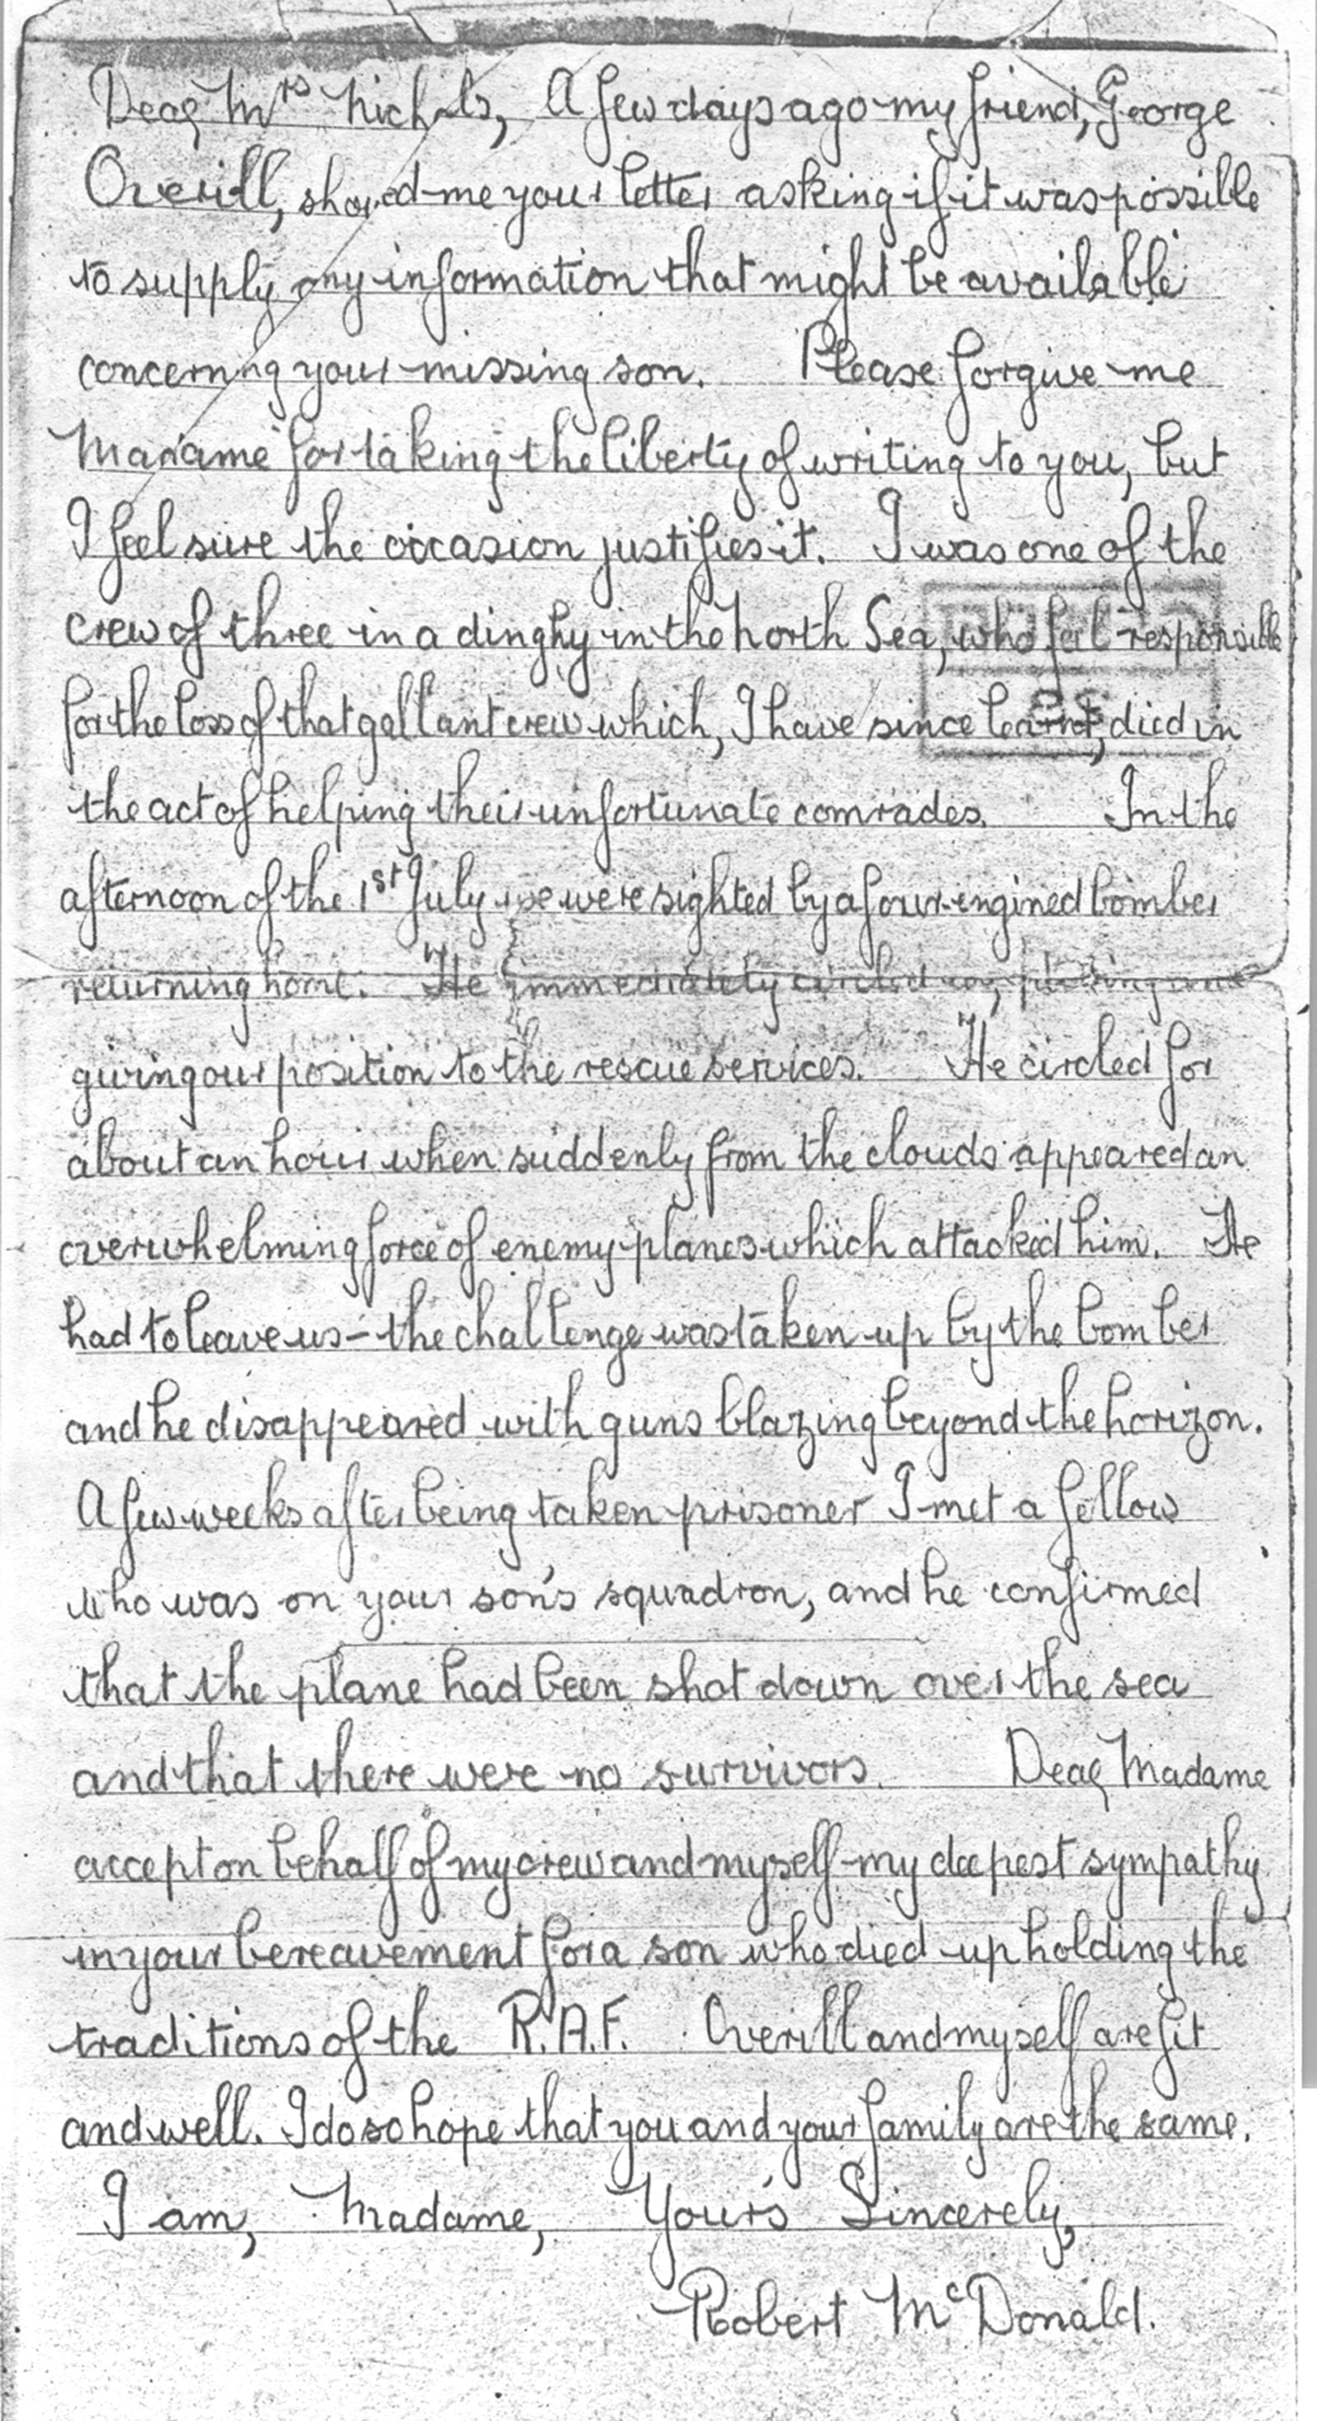 Dear Mrs Nichols, A few days ago my friend, George
Overill, showed me your letter asking if it was possible
to supply any information that might be available
concerning your missing son. Please forgive me
Madame for taking the liberty of writing to you, but
I feel sure the occasion justifies it. I was one of the
crew of three in a dinghy in the North Sea, who feel responsible
for the loss of that gallant crew which, I have since learnt, died in
the act of helping their unfortunate comrades. In the
afternoon of the 1st July we were sighted by a four-engined bomber
returning home. He immediately circled
giving our position to the rescue services. He circled for
about an hour when suddenly from the clouds appeared an
overwhelming force of enemy planes which attacked him. He
had to leave us - the challenge was taken up by the bomber
and he disappeared with guns blazing beyond the horizon.
A few weeks after being taken prisoner I met a fellow
who was on your son's squadron, and he confirmed
that the plane had been shot down over the sea
and that there were no survivors. Dear Madame
accept on behalf of my crew and myself my deepest sympathy
in your bereavement for a son who died upholding the
traditions of the R.A.F. Overill and myself are fit
and well. I do so hope that you and your family are the same.
I am, Madame, Your's Sincerely,
Robert McDonald.